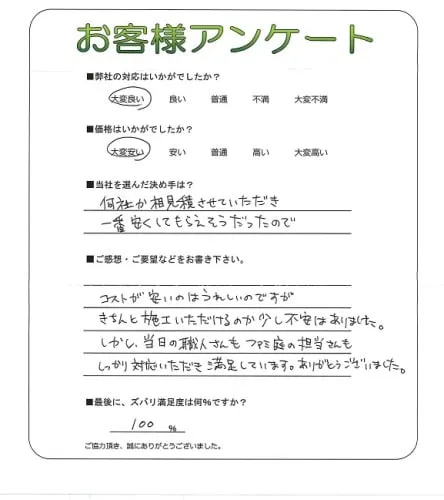 お客様アンケート
■弊社の対応はいかがでしたか？
大変良い 良い 普通 不満 大変不満
■価格はいかがでしたか？
大変安い 安い 普通 高い 大変高い
■当社を選んだ決め手は？
何社か相見積させていただき
一番安くしてもらえそうだったので
■ご感想・ご要望などをお書き下さい。
コストが安いのはうれしいのですが
きちんと施工いただけるのか少し不安はありました。
しかし、当日の職人さんもファミ庭の担当さんも
しっかり対応いただき満足しています。ありがとうございました。
■最後に、ズバリ満足度は何%ですか？
100 %
ご協力頂き、誠にありがとうございました。